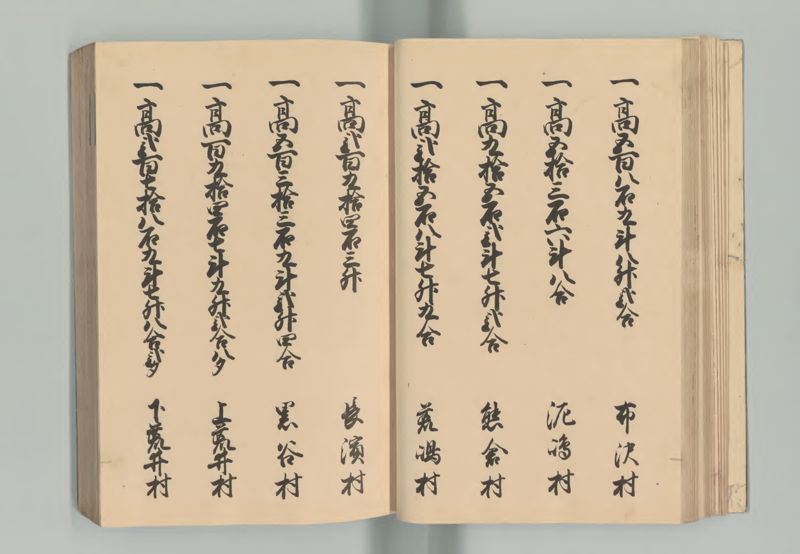 一高五百八石九斗八升弐合 布沢村
一高五拾三石六斗八合 泥嶋村
一高九拾五石弐斗七升弐合 熊倉村
一高弐拾五石八斗七升九合 荒嶋村
一高弐百九拾四石三升 長濱村
一高五百三拾三石九斗弐升四合 黒谷村
一高百九拾四石七斗九升弐合八夕 上荒井村
一高弐百七拾八石九斗七升八合弐夕 下荒井村